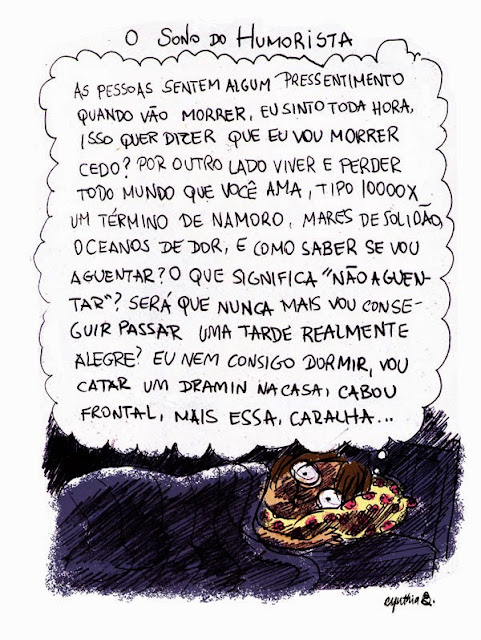 O SONO DO HUMORISTA
AS PESSOAS SENTEM ALGUM PRESSENTIMENTO
QUANDO VÃO MORRER, EU SINTO TODA HORA,
ISSO QUER DIZER QUE EU VOU MORRER
CEDO? POR OUTRO LADO VIVER E PERDER
TODO MUNDO QUE VOCÊ AMA, TIPO 10000X
UM TÉRMINO DE NAMORO, MARES DE SOLIDÃO,
OCEANOS DE DOR, E COMO SABER SE VOU
AGUENTAR? O QUE SIGNIFICA "NÃO AGUEN-
TAR"? SERÁ QUE NUNCA MAIS VOU CONSE-
GUIR PASSAR UMA TARDE REALMENTE
ALEGRE? EU NEM CONSIGO DORMIR, VOU
CATAR UM DRAMIN NA CASA, CABOU
FRONTAL, MAIS ESSA, CARALHA...
cynthia B.